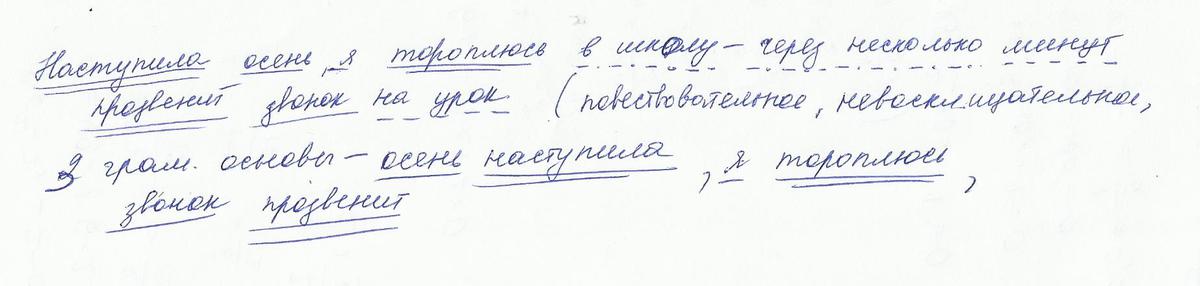 Наступила осень, я тороплюсь в школу – через несколько минут
прозвенит звонок на урок (повествовательное, невосклицательное,
3 грам. основы – осень наступила, я тороплюсь,
звонок прозвенит